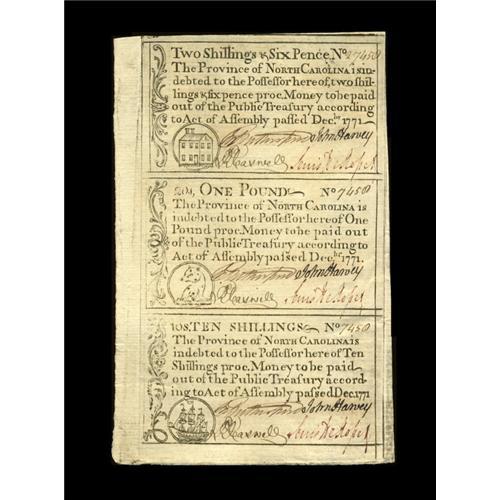 Two Shillings & Six Pence, No 7450
The Province of NORTH CAROLINA is in-
debted to the Possessor hereof, two shil-
lings & six pence proc. Money to be paid
out of the Public Treasury according
to Act of Assembly passed Decbr. 1771
John Harvey
20s, ONE POUND No 7450
The Province of NORTH CAROLINA is
indebted to the Possessor hereof One
Pound proc. Money to be paid out
of the Public Treasury according to
Act of Assembly passed Decbr. 1771.
John Harvey
10S. TEN SHILLINGS No 7450
The Province of NORTH CAROLINA is
indebted to the Possessor hereof Ten
Shillings proc. Money to be paid
out of the Public Treasury accord-
ing to Act of Assembly passed Dec. 1771
John Harvey